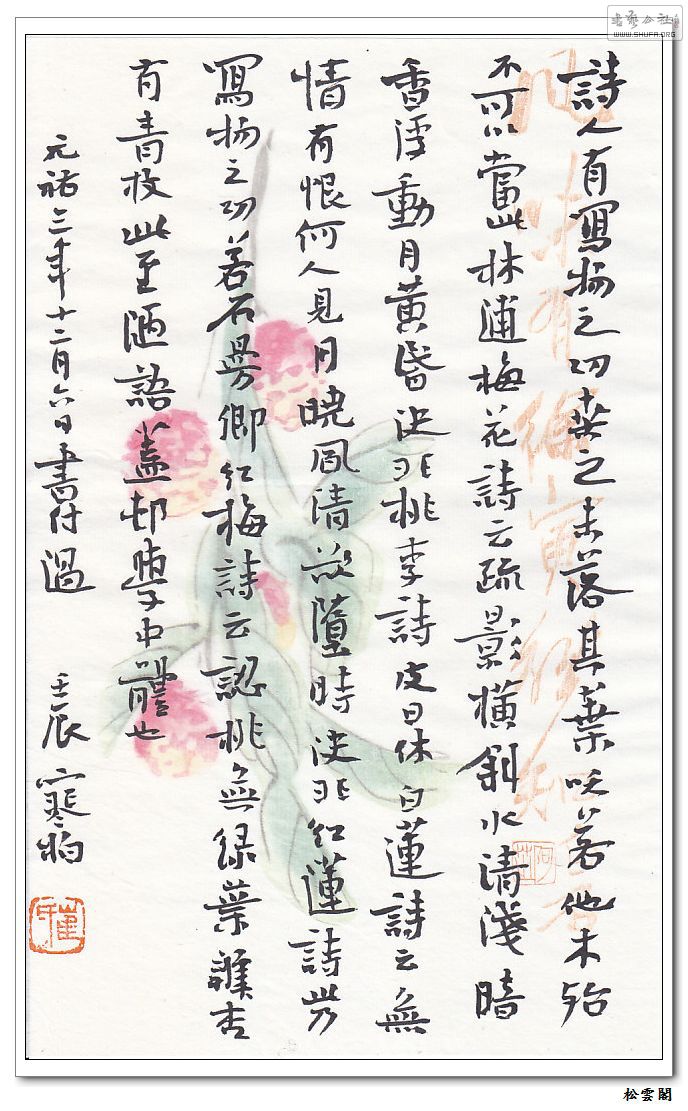 詩人有寫物之功桑之未落其葉沃若他木殆
不可以當此林逋梅花詩云疏影橫斜水清淺暗
香浮動月黃昏決非桃李詩皮日休白蓮詩云無
情有恨何人見月曉風清欲墮時決非紅蓮詩此乃
寫物之功若石曼卿紅梅詩云認桃無綠葉辨杏
有青枝此至陋語蓋村學中體也
元祐三年十二月六日書付過 壬辰寒
書藝公社
WWW.SHUFA.ORG
松雲閣